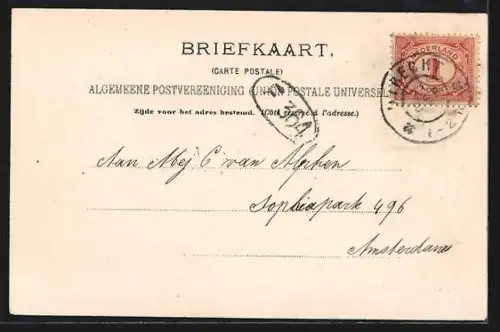 BRIEFKAART.
(CARTE POSTALE)
ALGEMEENE POSTVEREENIGING (UNION POSTALE UNIVERSELLE)
Zijde voor het adres bestemd. (Côté réservé à l'adresse.)
NEDERLAND
1
CENT
364
Aan Mej C van Alphen
Sophiapark 496
Amsterdam